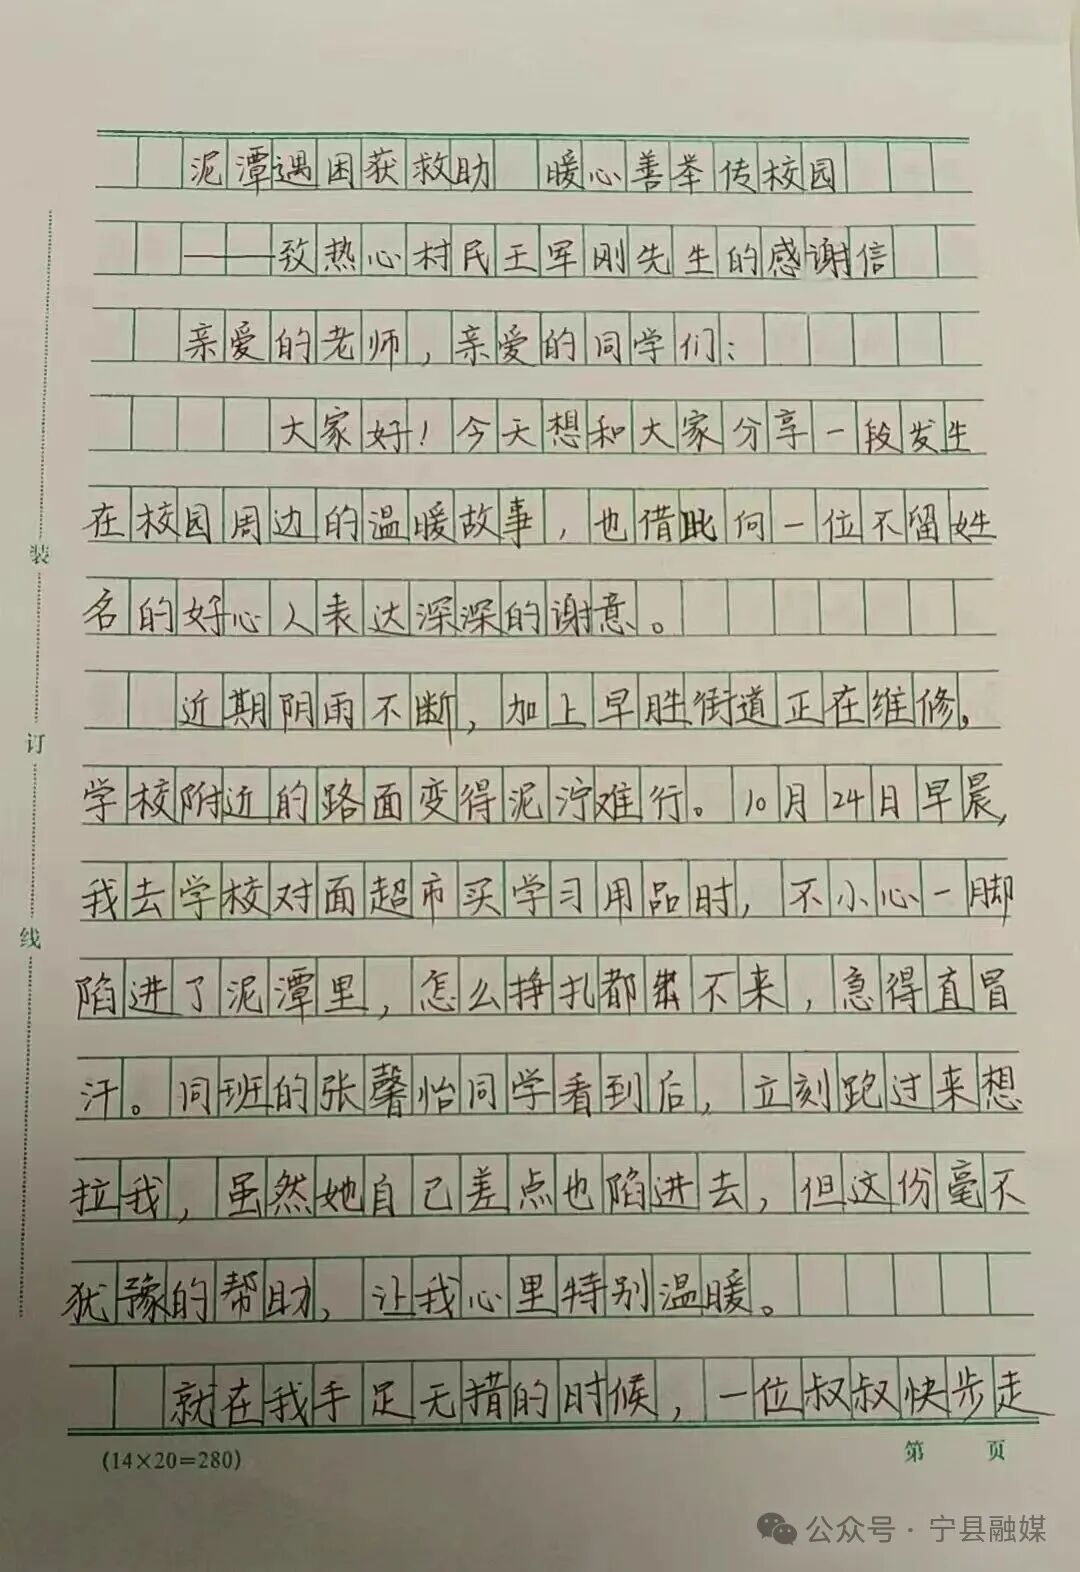 泥潭遇困获救助 暖心善举传校园
——致热心村民王军刚先生的感谢信
亲爱的老师，亲爱的同学们：
大家好！今天想和大家分享一段发生
在校园周边的温暖故事，也借此向一位不留姓
名的好心人表达深深的谢意。
近期阴雨不断，加上早胜街道正在维修，
学校附近的路面变得泥泞难行。10月24日早晨，
我去学校对面超市买学习用品时，不小心一脚
陷进了泥潭里，怎么挣扎都出不来，急得直冒
汗。同班的张馨怡同学看到后，立刻跑过来想
拉我，虽然她自己差点也陷进去，但这份毫不
犹豫的帮助，让我心里特别温暖。
就在我手足无措的时候，一位叔叔快步走
装
订
线
(14×20=280)
第 页
公众号·宁县融媒